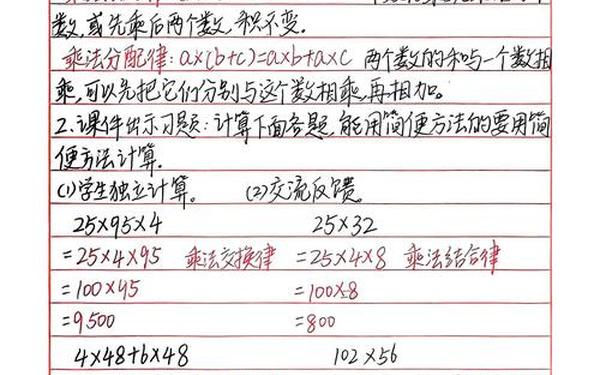 数,或先乘后两个数,积不变.
乘法分配律:a×(b+c)=a×b+a×c 两个数的和与一个数相
乘,可以先把它们分别与这个数相乘,再相加。
2.课件出示习题:计算下面各题,能用简便方法的要用简
便方法计算.
(1)学生独立计算。 (2)交流反馈。
25×95×4 25×32
=25×4×95 乘法交换律 =25×4×8 乘法结合律
=100×95 =100×8
=9500 =800
4×48+6×48 102×56